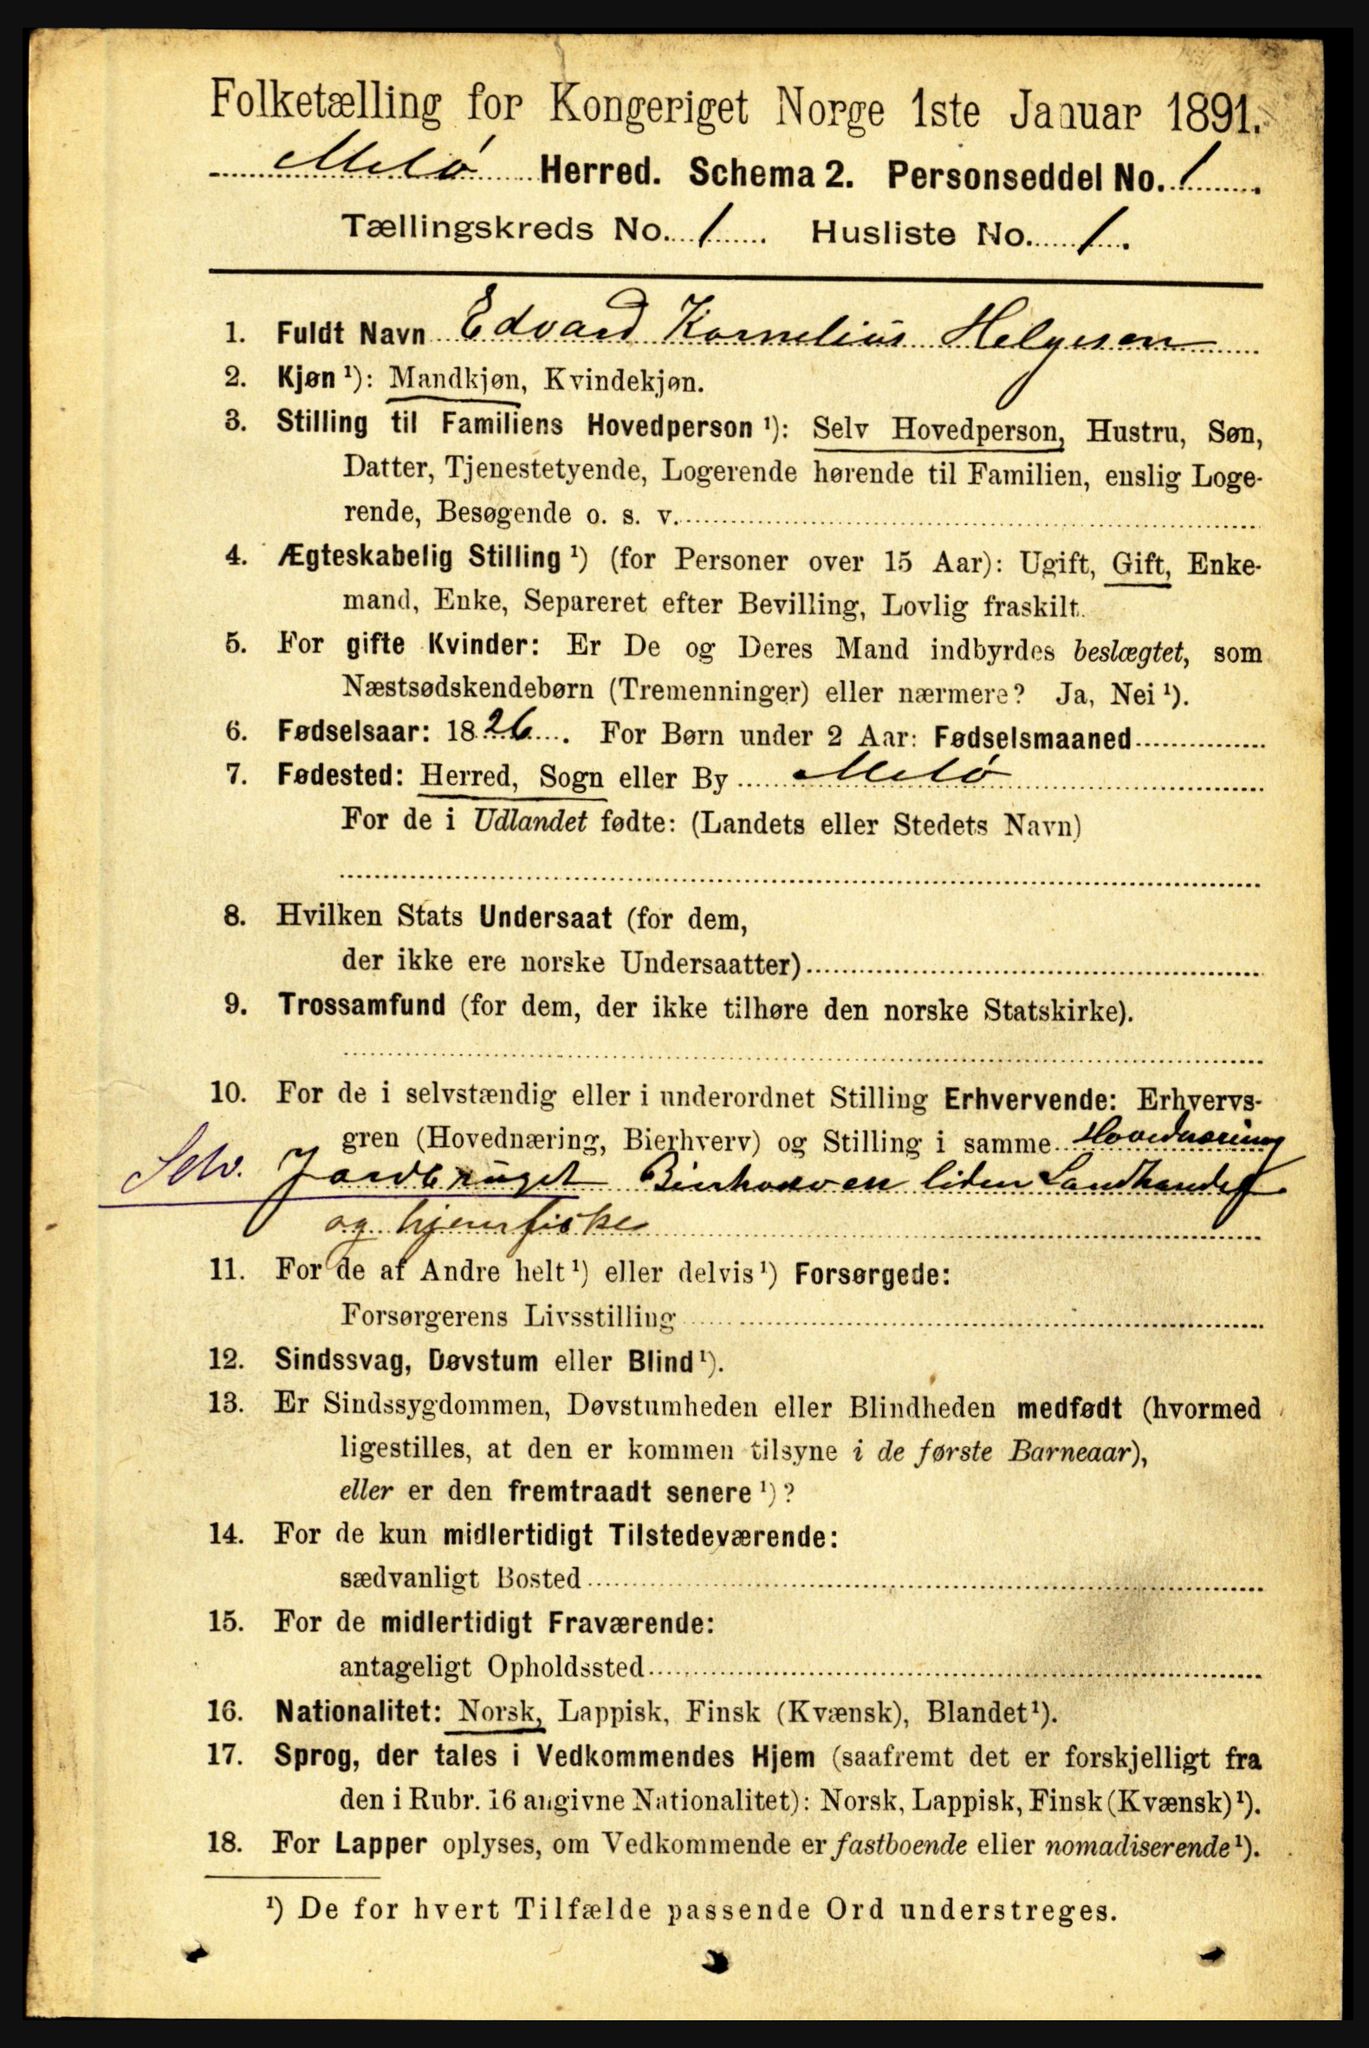 Folketælling for Kongeriget Norge 1ste Januar 1891.
Melø Herred. Schema 2. Personseddel No. 1.
Tællingskreds No. 1. Husliste No. 1.
1. Fuldt Navn Edvard Kornelius Helgesen
2. Kjøn ¹): Mandkjøn, Kvindekjøn.
3. Stilling til Familiens Hovedperson ¹): Selv Hovedperson, Hustru, Søn,
Datter, Tjenestetyende, Logerende hørende til Familien, enslig Loge-
rende, Besøgende o. s. v.
4. Ægteskabelig Stilling ¹) (for Personer over 15 Aar): Ugift, Gift, Enke-
mand, Enke, Separeret efter Bevilling, Lovlig fraskilt.
5. For gifte Kvinder: Er De og Deres Mand indbyrdes beslægtet, som
Næstsødskendebørn (Tremenninger) eller nærmere? Ja, Nei ¹).
6. Fødselsaar: 1826. For Børn under 2 Aar: Fødselsmaaned
7. Fødested: Herred, Sogn eller By Melø
For de i Udlandet fødte: (Landets eller Stedets Navn)
8. Hvilken Stats Undersaat (for dem,
der ikke ere norske Undersaatter)
9. Trossamfund (for dem, der ikke tilhøre den norske Statskirke).
10. For de i selvstændig eller i underordnet Stilling Erhvervende: Erhvervs-
gren (Hovednæring, Bierhverv) og Stilling i samme Hovednæring
Selv. Jordbruget Bierhverven liden Landhandel
og hjemfiske
11. For de af Andre helt ¹) eller delvis ¹) Forsørgede:
Forsørgerens Livsstilling
12. Sindssvag, Døvstum eller Blind ¹).
13. Er Sindssygdommen, Døvstumheden eller Blindheden medfødt (hvormed
ligestilles, at den er kommen tilsyne i de første Barneaar),
eller er den fremtraadt senere ¹)?
14. For de kun midlertidigt Tilstedeværende:
sædvanligt Bosted
15. For de midlertidigt Fraværende:
antageligt Opholdssted
16. Nationalitet: Norsk, Lappisk, Finsk (Kvænsk), Blandet ¹).
17. Sprog, der tales i Vedkommendes Hjem (saafremt det er forskjelligt fra
den i Rubr. 16 angivne Nationalitet): Norsk, Lappisk, Finsk (Kvænsk) ¹).
18. For Lapper oplyses, om Vedkommende er fastboende eller nomadiserende ¹).
¹) De for hvert Tilfælde passende Ord understreges.